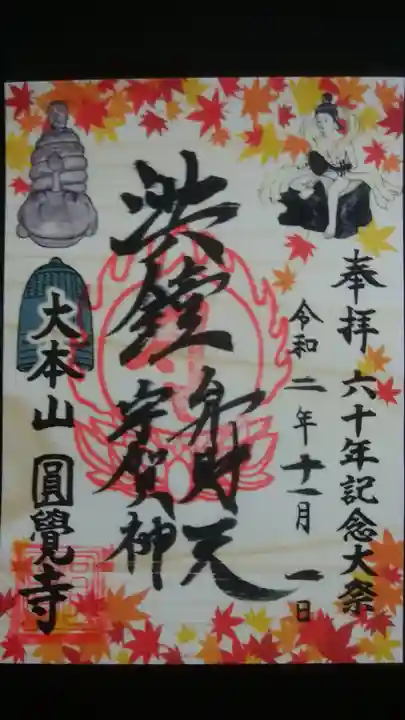 奉拝 六十年記念大祭
令和二年十一月一日
洪鐘
弁財天
宇賀神
大本山 圓覺寺